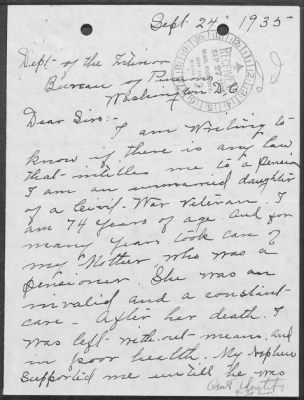 Sept. 24" 1935
Dept. of the Interior
Bureau of Pensions
Washington D.C.
Dear Sirs:-
I am writing to
know if there is any law
that intitles me to a Pension
I am an unmarried daughter
of a Civil-War Veteran. I
am 74 years of age. And for
many years took care of
my Mother who was a
pensioner. She was an
invalid and a constant-
care - After her death. I
was left-with-out-means, and
in poor health. My Nephew
supported me untill he was